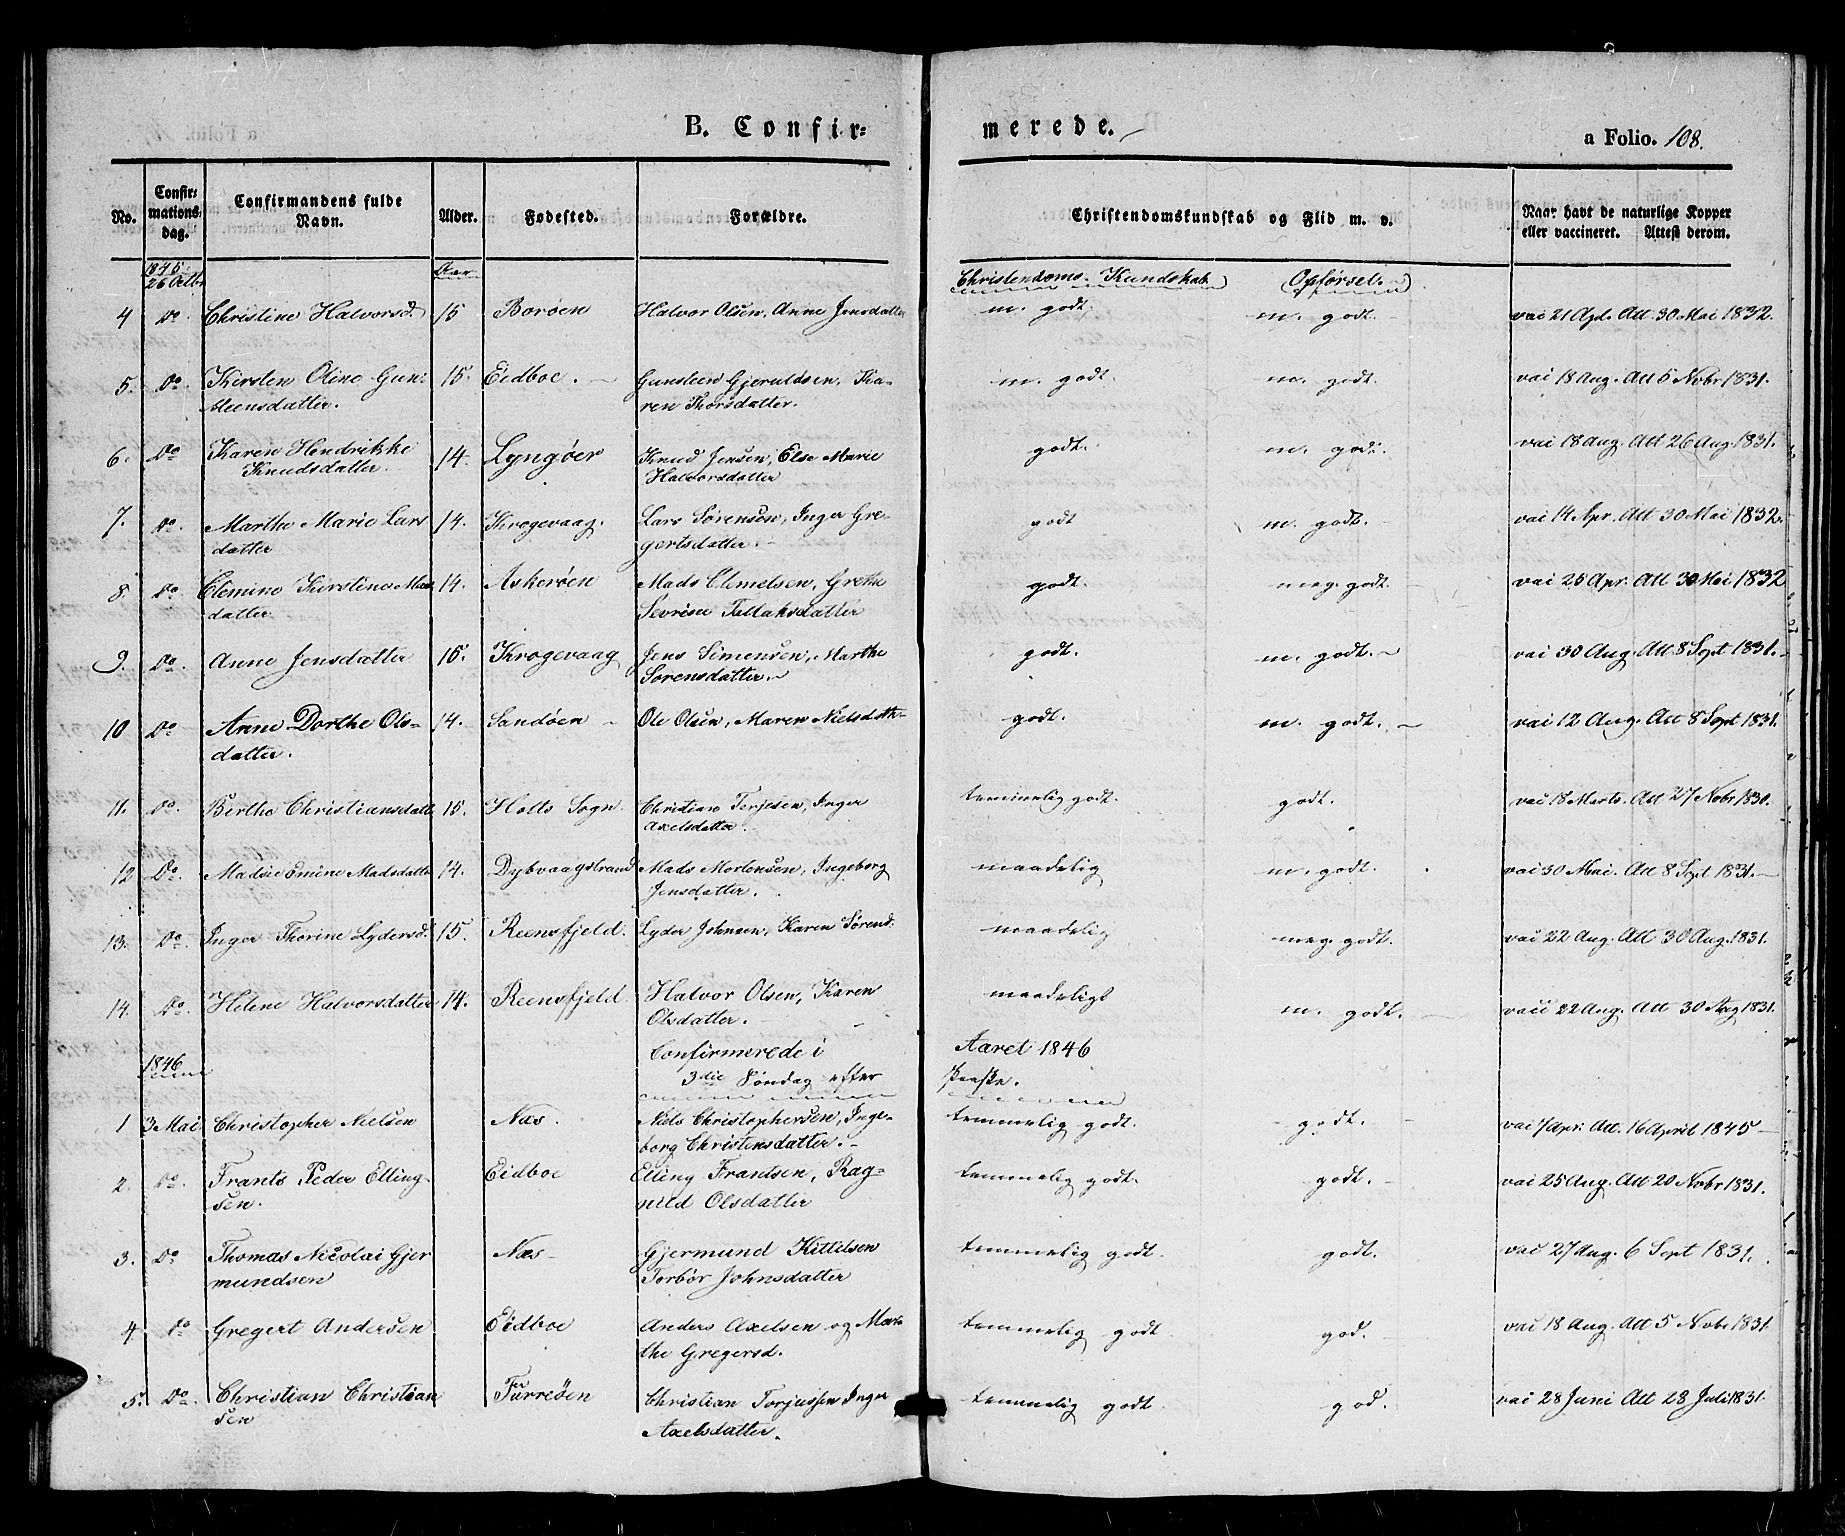 B. Confir= merede.
a Folio. 108.
No. Confir= mations= dag. Confirmandens fulde Navn. Alder. Fødested. Forældre. Christendomskundskab og Flid m. v. Naar havt de naturlige Kopper eller vaccineret. Attest derom.
1845 26 Octbr Aar Christendoms Kundskab Opførsel.
4 Do Christine Halvorsd. 15 Borøen Halvor Olsen, Anne Jensdatter m. godt. m. godt. vac 21 Apr. Att. 30 Mai 1832.
5. Do Kirsten Oline Gun- 15. Eidboe. Gunsteen Gjeruldsen, Ka- m. godt. m. godt. vac 18 Aug. Att 5 Nobr 1831.
steensdatter. ren Thorsdatter.
6. Do Karen Hendrikke 14. Lyngøer Knud Jensen, Else Marie godt. m. godt. vac 18 Aug. Att 26 Aug. 1831.
Knudsdatter. Halvorsdatter
7. Do Marthe Marie Lars 14. Krogevaag. Lars Sørensen, Inger Gre- godt m. godt. vac 14 Apr. Att 30 Mai 1832.
datter gertsdatter.
8. Do Clemine Kirstine Mads 14. Askerøen Mads Clemetsen, Grethe godt. meg. godt. vac 25 Apr. Att 30 Mai 1832
datter Sevrine Tellaksdatter
9. Do Anne Jensdatter 15. Krogevaag Jens Simensen, Marthe godt. m. godt. vac 30 Aug. Att 8 Sept 1831.
Sørensdatter.
10 Do Anne Dorthe Ols- 14. Sandøen Ole Olsen, Maren Nielsdatt. godt. m. godt. vac 12 Aug. Att 8 Sept 1831.
datter.
11. Do. Berthe Christiansdatt 15. Holts Sogn Christian Terjesen, Inger temmelig godt. godt. vac 18 Marts. Att 27 Nobr 1830.
Axelsdatter
12 Do. Madsie Emine Madsdatter 14. Dybvaagstrand Mads Mortensen, Ingeborg maadelig m. godt. vac 30 Mai. Att 8 Sept 1831.
Jensdatter.
13. Do. Inger Thorine Lydersd. 15. Reensfjeld. Lyder Johnsen, Karen Sørend. maadelig meg. godt. vac 22 Aug. Att 30 Aug. 1831.
14. Do. Helene Halvorsdatter 14. Reensfjeld Halvor Olsen, Karen maadeligt m. godt. vac 22 Aug. Att 30 Aug 1831.
Olsdatter.
1846 Confirmerede i Aaret 1846
3die Søndag efter Paaske.
1 3 Mai Christopher Nielsen Næs. Niels Christophersen, Inge- temmelig godt. godt. vac 7 Apr: Att. 16 April 1845
borg Christensdatter.
2. Do. Frants Peder Elling- Eidboe Elling Frantsen, Rag- temmelig godt. godt. vac 25 Aug. Att 20 Nobr 1831.
sen. nild Olsdatter
3. Do Thomas Nicolai Gjer Næs Gjermund Kittelsen temmelig godt. godt. vac 27 Aug. 6 Sept 1831.
mundsen Torbør Johnsdatter
4 Do Gregert Andersen Eidboe Anders Axelsen og Mar- temmelig godt god. vac 18 Aug. Att 5 Nobr 1831
the Gregersd.
5. Do. Christian Christian Furrøen Christian Torjussen Inger temmelig godt god. vac 28 Juni Att 28 Juli 1831.
sen Axelsdatter.